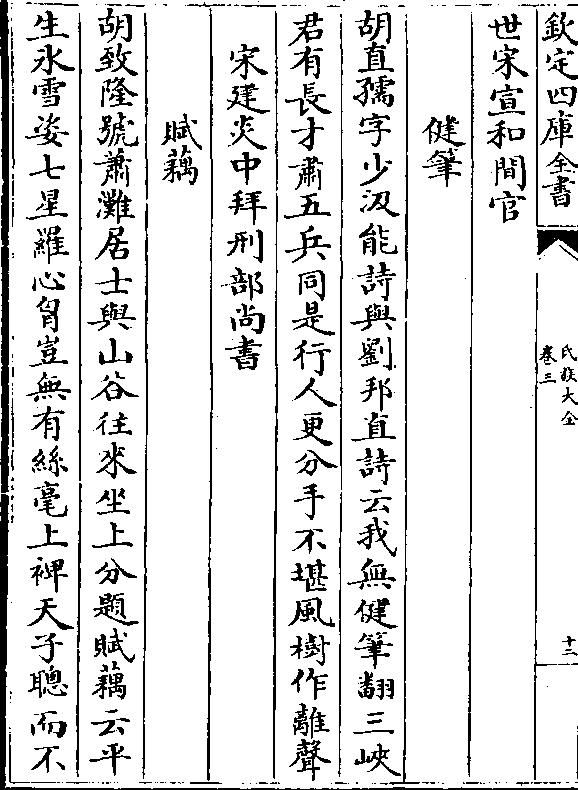 欽定四庫全書
氏族大全
卷三
十二
世宋宣和間官
健筆
胡直孺字少汲能詩與劉邦直詩云我無健筆翻三峽
君有長才肅五兵同是行人更分手不堪風樹作離聲
宋建炎中拜刑部尚書
賦藕
胡致隆號蕭灘居士與山谷往來坐上分題賦藕云平
生氷雪姿七星羅心胷豈無有絲毫上裨天子聰而不